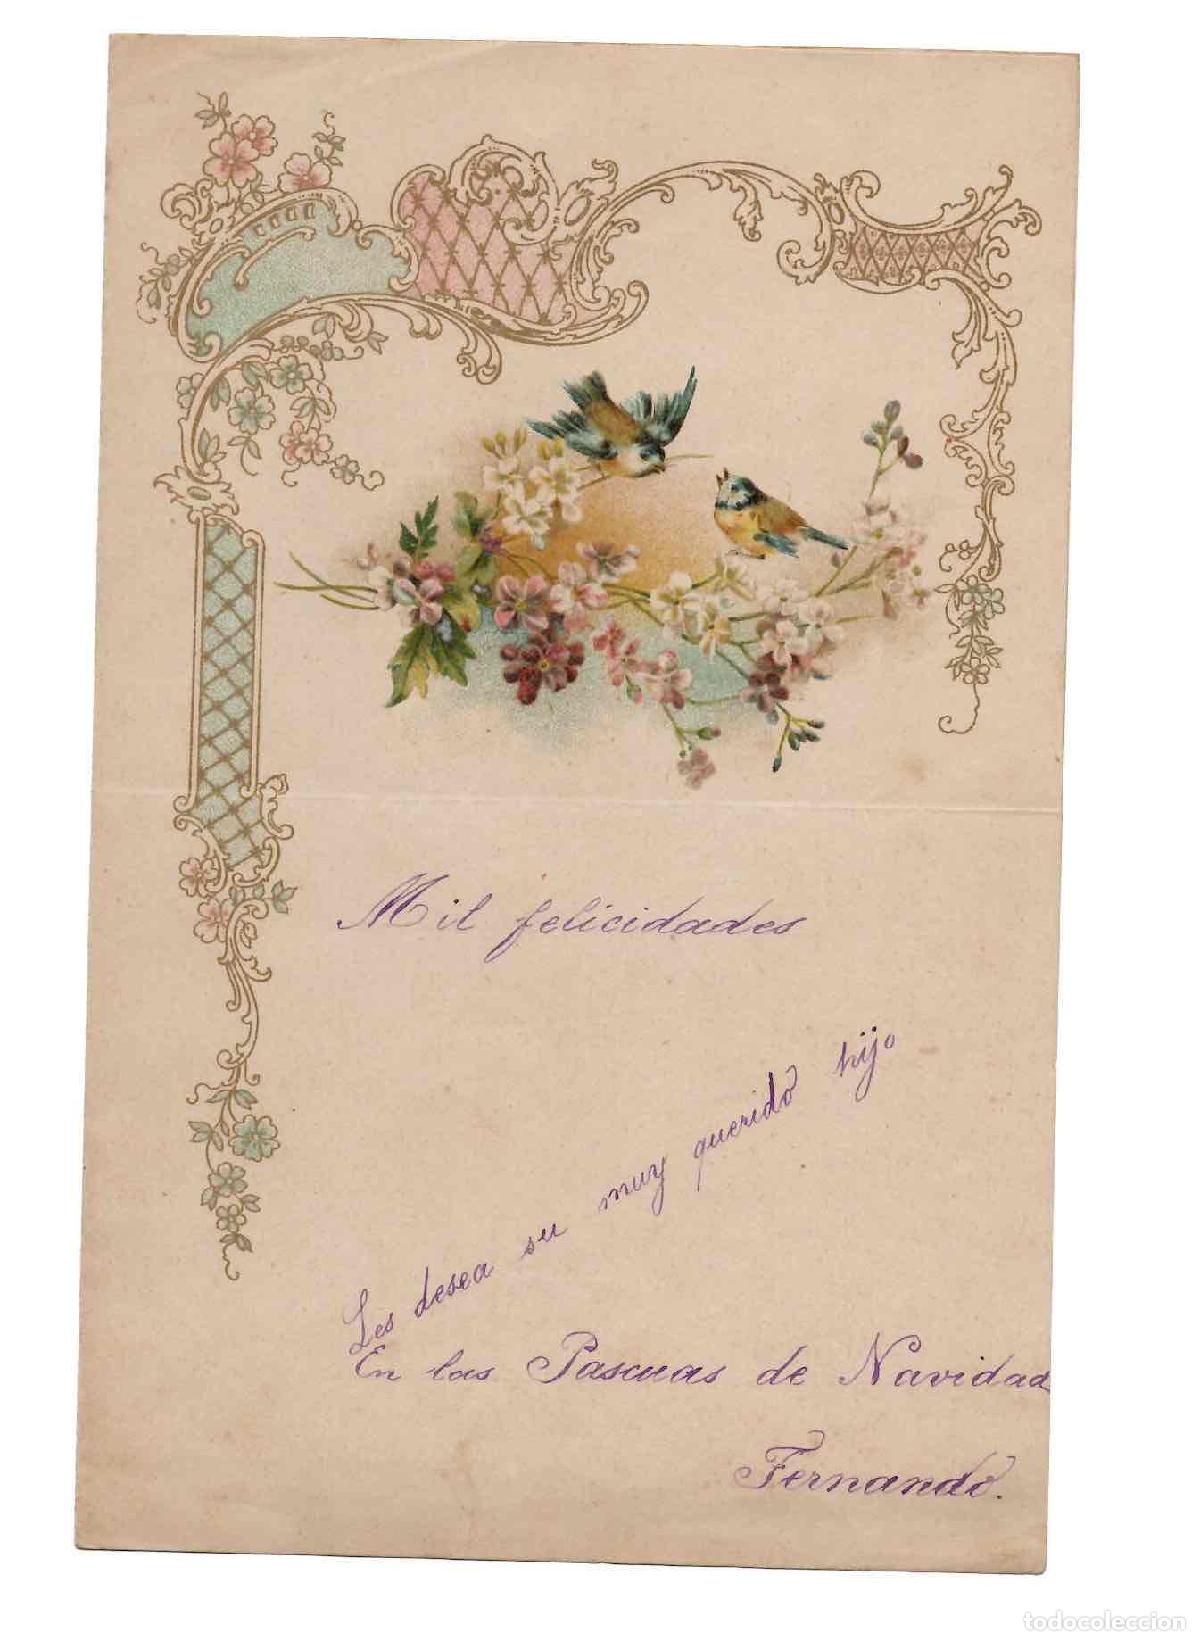 Mil felicidades
Les desea su muy querido hijo
En las Pascuas de Navidad
Fernando.
todocoleccion